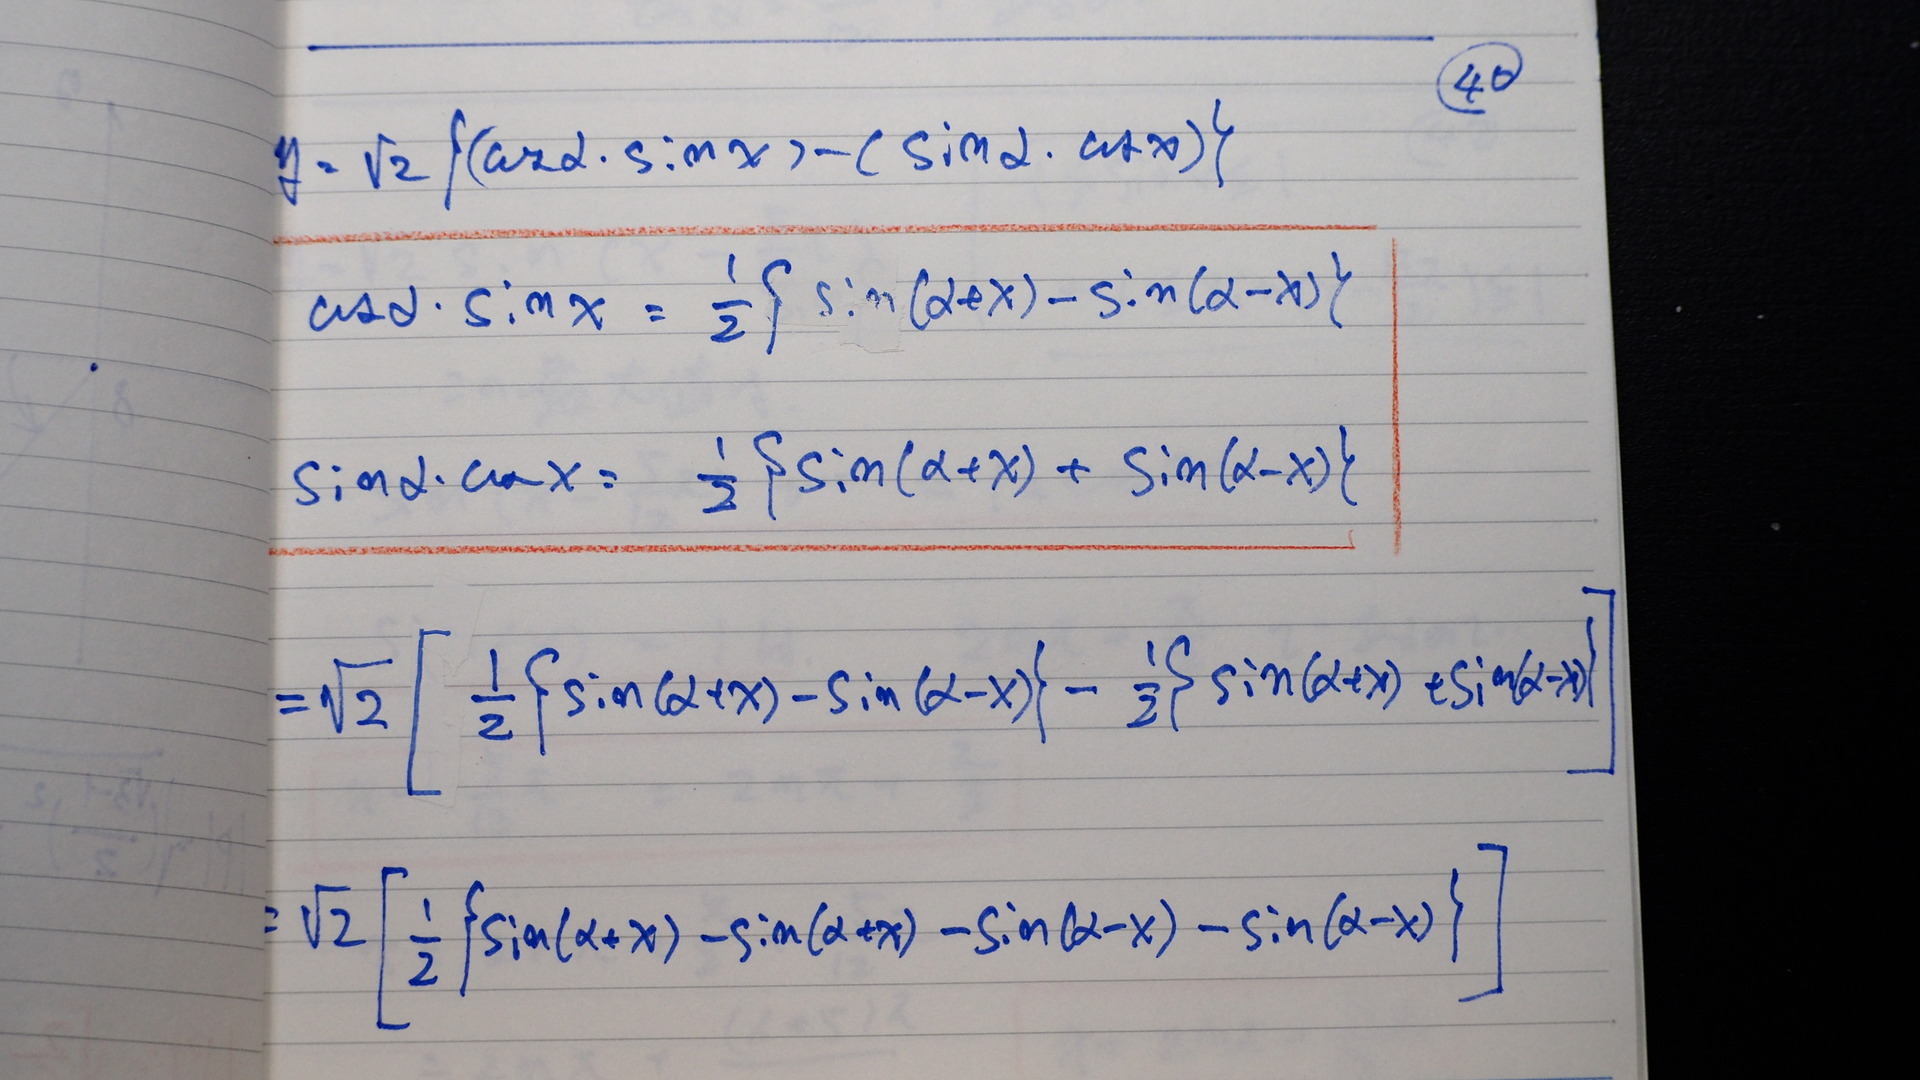 40
y = √2 {(cosα · sinx) - (sinα · cosx)}
cosα · sinx = 1/2 {sin(α+x) - sin(α-x)}
sinα · cosx = 1/2 {sin(α+x) + sin(α-x)}
= √2 [ 1/2 {sin(α+x) - sin(α-x)} - 1/2 {sin(α+x) + sin(α-x)} ]
= √2 [ 1/2 {sin(α+x) - sin(α+x) - sin(α-x) - sin(α-x)} ]